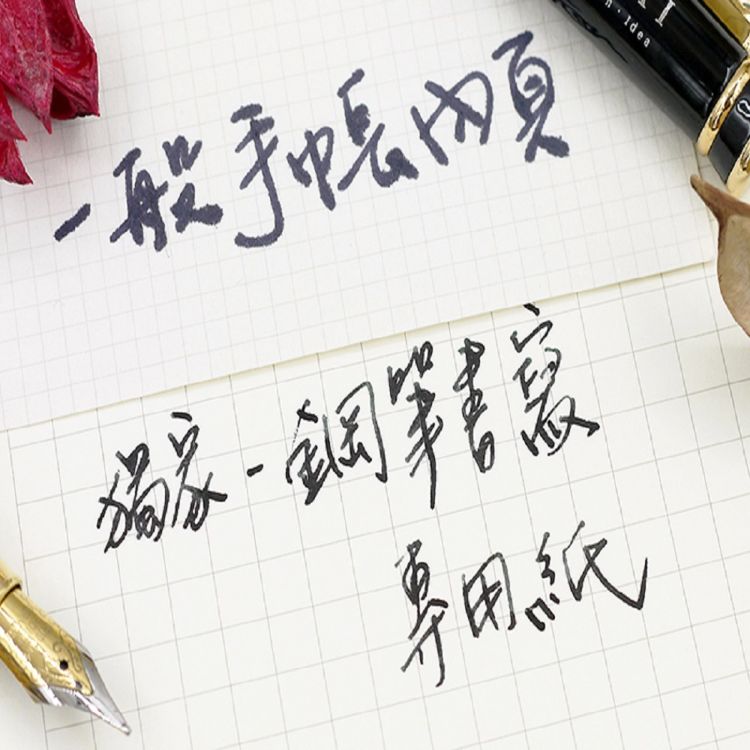 一般手帳內頁
獨家-鋼筆書寫
專用紙
n·idea